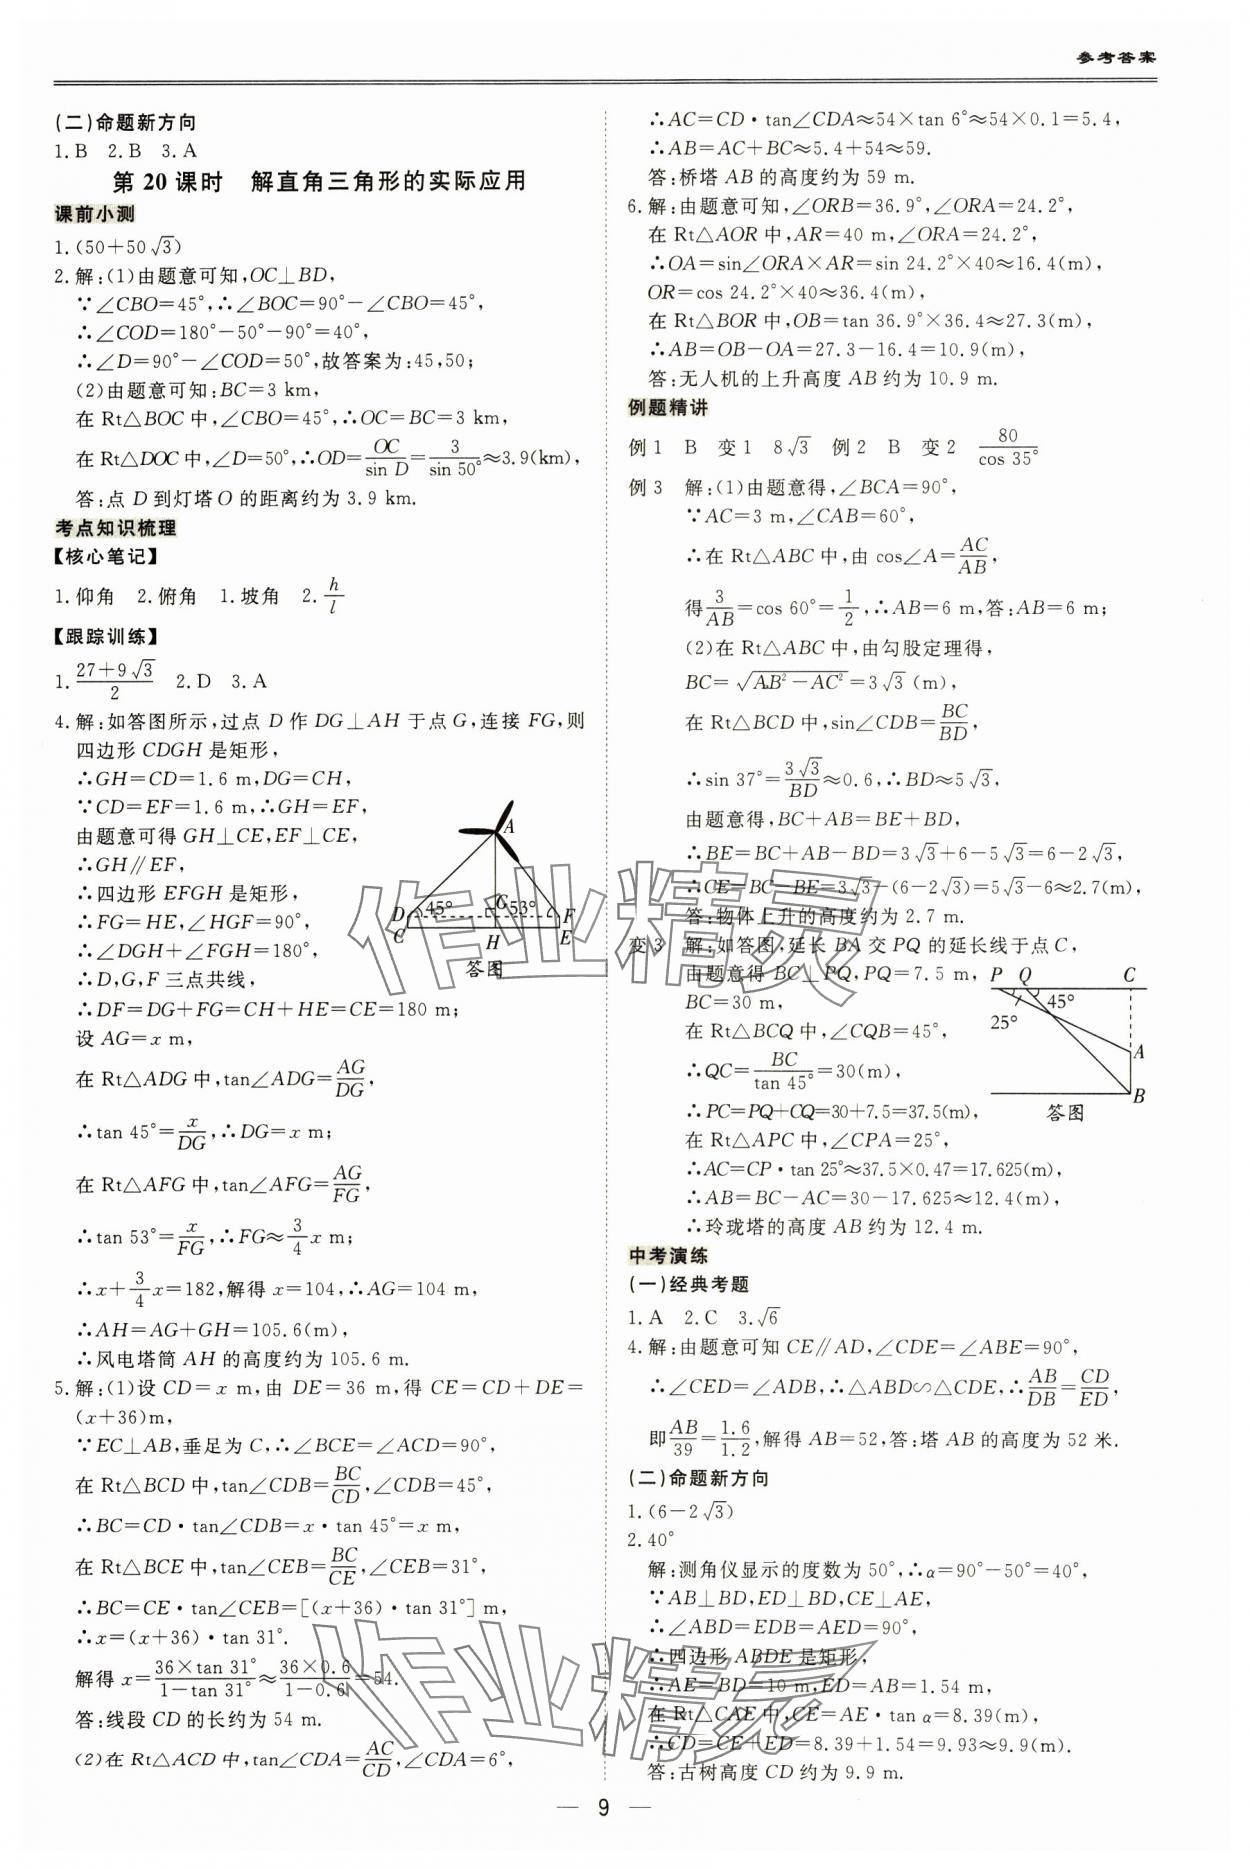 参考答案
(二)命题新方向
1.B 2.B 3.A
第 20 课时 解直角三角形的实际应用
课前小测
1.(50+50√3)
2.解:(1)由题意可知,OC⊥BD,
∵∠CBO=45°,∴∠BOC=90°-∠CBO=45°,
∴∠COD=180°-50°-90°=40°,
∴∠D=90°-∠COD=50°,故答案为:45,50;
(2)由题意可知:BC=3 km,
在 Rt△BOC 中,∠CBO=45°,∴OC=BC=3 km,
在 Rt△DOC 中,∠D=50°,∴OD=OC/sin D=3/sin 50°≈3.9(km),
答:点 D 到灯塔 O 的距离约为 3.9 km.
考点知识梳理
【核心笔记】
1.仰角 2.俯角 1.坡角 2.h/l
【跟踪训练】
1.(27+9√3)/2 2.D 3.A
4.解:如答图所示,过点 D 作 DG⊥AH 于点 G,连接 FG,则
四边形 CDGH 是矩形,
∴GH=CD=1.6 m,DG=CH,
∵CD=EF=1.6 m,∴GH=EF,
由题意可得 GH⊥CE,EF⊥CE,
∴GH∥EF,
∴四边形 EFGH 是矩形,
∴FG=HE,∠HGF=90°,
∴∠DGH+∠FGH=180°,
∴D,G,F 三点共线,
∴DF=DG+FG=CH+HE=CE=180 m;
设 AG=x m,
在 Rt△ADG 中,tan∠ADG=AG/DG,
∴tan 45°=x/DG,∴DG=x m;
在 Rt△AFG 中,tan∠AFG=AG/FG,
∴tan 53°=x/FG,∴FG≈3/4 x m;
∴x+3/4 x=182,解得 x=104,∴AG=104 m,
∴AH=AG+GH=105.6(m),
∴风电塔筒 AH 的高度约为 105.6 m.
A
D 45° G 53° F
C H E
答图
5.解:(1)设 CD=x m,由 DE=36 m,得 CE=CD+DE=
(x+36)m,
∵EC⊥AB,垂足为 C,∴∠BCE=∠ACD=90°,
在 Rt△BCD 中,tan∠CDB=BC/CD,∠CDB=45°,
∴BC=CD·tan∠CDB=x·tan 45°=x m,
在 Rt△BCE 中,tan∠CEB=BC/CE,∠CEB=31°,
∴BC=CE·tan∠CEB=[(x+36)·tan 31°] m,
∴x=(x+36)·tan 31°.
解得 x=(36×tan 31°)/(1-tan 31°)≈(36×0.6)/(1-0.6)=54.
答:线段 CD 的长约为 54 m.
(2)在 Rt△ACD 中,tan∠CDA=AC/CD,∠CDA=6°,
∴AC=CD·tan∠CDA≈54×tan 6°≈54×0.1=5.4,
∴AB=AC+BC≈5.4+54≈59.
答:桥塔 AB 的高度约为 59 m.
6.解:由题意可知,∠ORB=36.9°,∠ORA=24.2°,
在 Rt△AOR 中,AR=40 m,∠ORA=24.2°,
∴OA=sin∠ORA×AR=sin 24.2°×40≈16.4(m),
OR=cos 24.2°×40≈36.4(m),
在 Rt△BOR 中,OB=tan 36.9°×36.4≈27.3(m),
∴AB=OB-OA=27.3-16.4=10.9(m),
答:无人机的上升高度 AB 约为 10.9 m.
例题精讲
例 1 B 变 1 8√3 例 2 B 变 2 80/cos 35°
例 3 解:(1)由题意得,∠BCA=90°,
∵AC=3 m,∠CAB=60°,
∴在 Rt△ABC 中,由 cos∠A=AC/AB,
得3/AB=cos 60°=1/2,∴AB=6 m,答:AB=6 m;
(2)在 Rt△ABC 中,由勾股定理得,
BC=√(AB²-AC²)=3√3(m),
在 Rt△BCD 中,sin∠CDB=BC/BD,
∴sin 37°=3√3/BD≈0.6,∴BD≈5√3,
由题意得,BC+AB=BE+BD,
∴BE=BC+AB-BD=3√3+6-5√3=6-2√3,
∴CE=BC-BE=3√3-(6-2√3)=5√3-6≈2.7(m),
答:物体上升的高度约为 2.7 m.
变 3 解:如答图,延长 BA 交 PQ 的延长线于点 C,
由题意得 BC⊥PQ,PQ=7.5 m,
BC=30 m,
在 Rt△BCQ 中,∠CQB=45°,
∴QC=BC/tan 45°=30(m),
∴PC=PQ+CQ=30+7.5=37.5(m),
在 Rt△APC 中,∠CPA=25°,
∴AC=CP·tan 25°≈37.5×0.47=17.625(m),
∴AB=BC-AC=30-17.625≈12.4(m),
∴玲珑塔的高度 AB 约为 12.4 m.
P Q C
45°
25°
A
B
答图
中考演练
(一)经典考题
1.A 2.C 3.√6
4.解:由题意可知 CE∥AD,∠CDE=∠ABE=90°,
∴∠CED=∠ADB,∴△ABD∽△CDE,∴AB/DB=CD/ED,
即AB/39=1.6/1.2,解得 AB=52,答:塔 AB 的高度为 52 米.
(二)命题新方向
1.(6-2√3)
2.40°
解:测角仪显示的度数为 50°,∴α=90°-50°=40°,
∵AB⊥BD,ED⊥BD,CE⊥AE,
∴∠ABD=EDB=AED=90°,
∴四边形 ABDE 是矩形,
∴AE=BD=10 m,ED=AB=1.54 m,
在 Rt△CAE 中,CE=AE·tan α=8.39(m),
∴CD=CE+ED=8.39+1.54=9.93≈9.9(m),
答:古树高度 CD 约为 9.9 m.
— 9 —
作业精灵
作业精灵